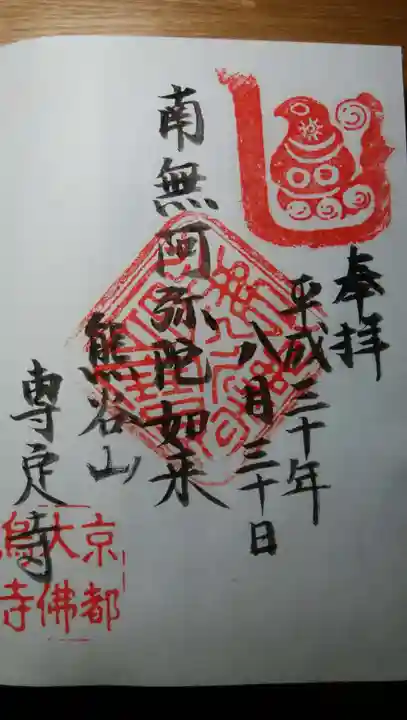 奉拝
平成三十年
八月三十日
南無阿弥陀如来
熊谷山
専定寺
京都
大佛
烏寺